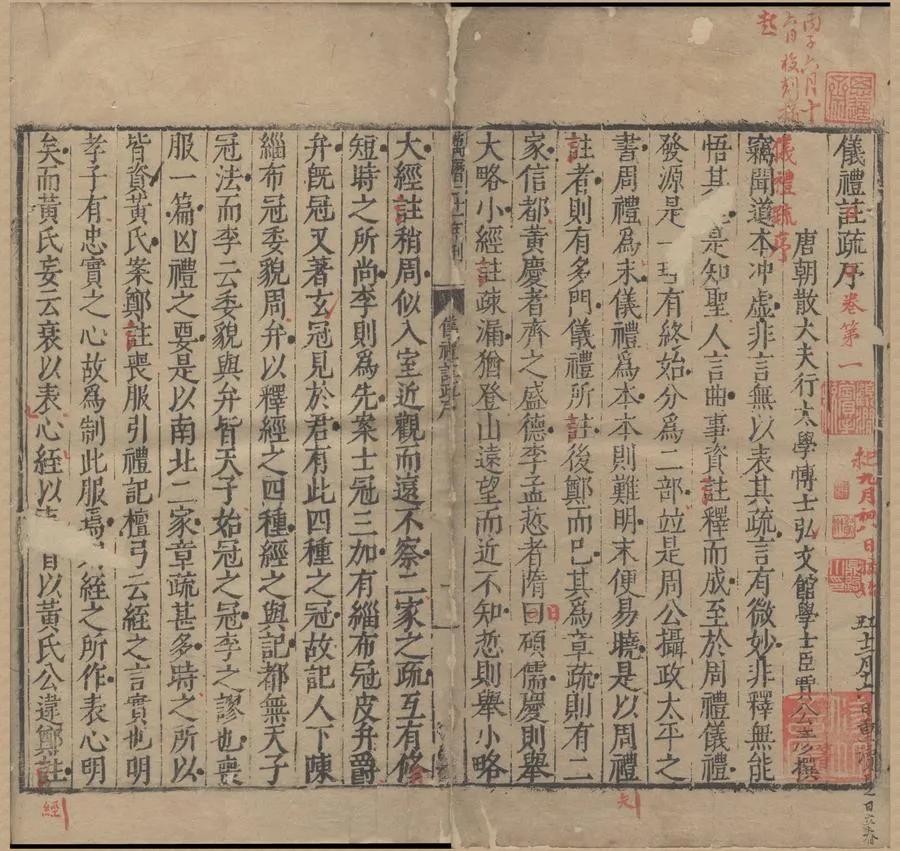 丙子六月十
六日校刻
起
儀禮註疏序
卷第一
儀禮疏序
唐朝散大夫行太學博士弘文館學士臣賈公彥撰
竊聞道本冲虛非言無以表其疏言有微妙非釋無能
悟其是知聖人言曲事資註釋而成至於周禮儀禮
發源是一理有終始分為二部並是周公攝政太平之
書周禮為末儀禮為本本則難明末便易曉是以周禮
註者則有多門儀禮所註後鄭而已其為章疏則有二
家信都黃慶者齊之盛德李孟悊者隋曰碩儒慶則舉
日
大略小經註疎漏猶登山遠望而近不知悊則舉小略
萬曆二十一年刊
儀禮註疏序
一
大經註稍周似入室近觀而遠不察二家之疏互有修
短時之所尚李則為先案士冠三加有緇布冠皮弁爵
弁既冠又著玄冠見於君有此四種之冠故記人下陳
緇布冠委貌周弁以釋經之四種經之與記都無天子
冠法而李云委貌與弁皆天子始冠之冠李之謬也喪
服一篇凶禮之要是以南北二家章疏甚多時之所以
皆資黃氏案鄭註喪服引禮記檀弓云絰之言實也明
孝子有忠實之心故為制此服焉則絰之所作表心明
矣而黃氏妄云衰以表心絰以首以黃氏公違鄭註
經